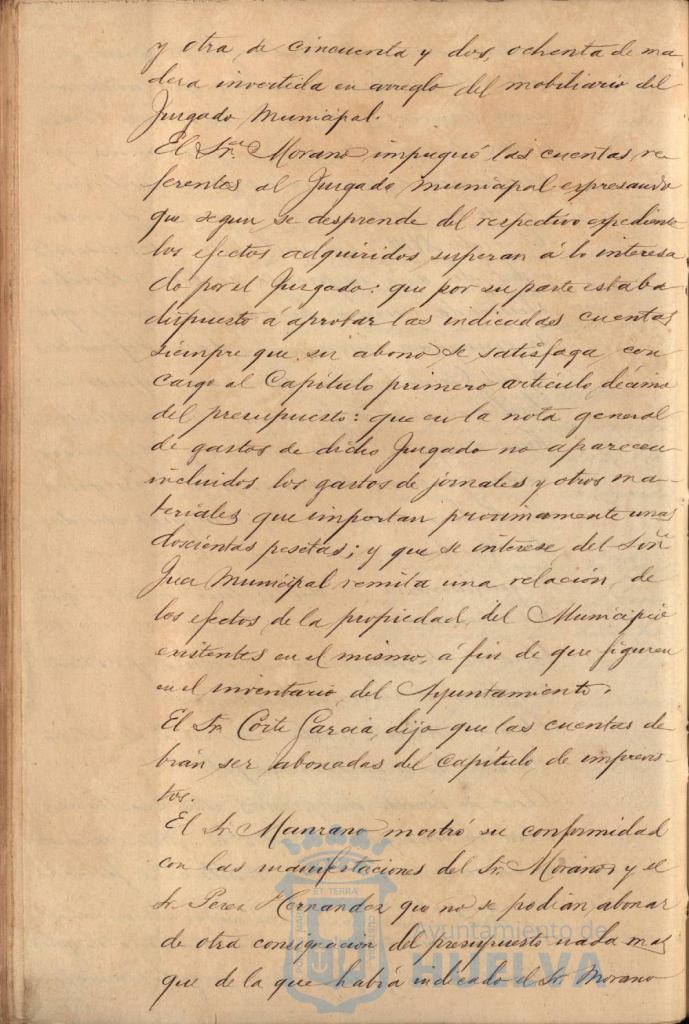 y otra de cincuenta y dos, ochenta de ma
dera invertida en arreglo del mobiliario del
Juzgado Municipal.
El Sr. Morano impugnó las cuentas re
ferentes al Juzgado municipal expresando
que segun se desprende del respectivo expediente
los efectos adquiridos superan á lo interesa
do por el Juzgado: que por su parte estaba
dispuesto á aprobar las indicadas cuentas
siempre que su abono se satisfaga con
cargo al Capítulo primero artículo décimo
del presupuesto: que en la nota general
de gastos de dicho Juzgado no aparecen
incluidos los gastos de jornales y otros ma-
teriales que importan proximamente unas
doscientas pesetas; y que se interese del Señr
Juez Municipal remita una relación de
los efectos de la propiedad del Municipio
existentes en el mismo, á fin de que figuren
en el inventario del Ayuntamiento.
El Sr. Corte Garcia, dijo que las cuentas de
bian ser abonadas del Capítulo de imprevis-
tos.
El Sr. Manzano mostró su conformidad
con las manifestaciones del Sr. Morano y el
Sr. Perez Hernandez que no se podian abonar
de otra consignación del presupuesto nada mas
que de la que habia indicado el Sr. Morano
Ayuntamiento de
HUELVA